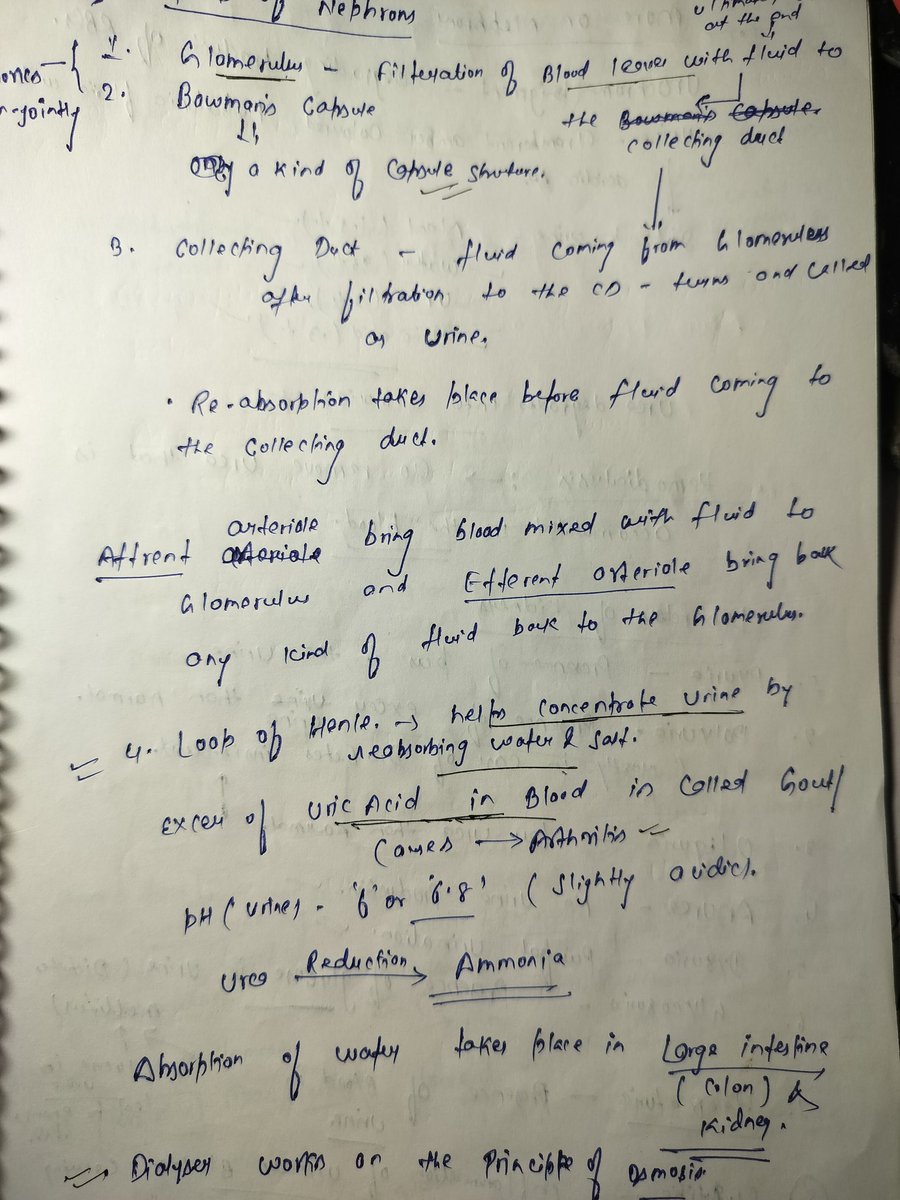 of Nephrons
at the end
1. Glomerulus - Filteration of Blood leaves with fluid to
2. Bowman's Capsule
the Bowman's Capsule.
collecting duct
only a kind of Capsule struture.
3. Collecting Duct - fluid coming from Glomeruless
after filtration to the CD - turns and called
as urine.
• Re-absorption takes place before fluid coming to
the collecting duct.
arteriole
Affrent arteriole bring blood mixed with fluid to
Glomerulus and Efferent arteriole bring back
any kind of fluid back to the Glomerulus.
4. Loop of Henle. → helps concentrate urine by
reabsorbing water & salt.
Excess of Uric Acid in Blood is called Gout/
Causes → Arthritis
pH (urine) - '6' or '6.8' (slightly acidic).
Urea Reduction → Ammonia
Absorption of water takes place in Large intestine
(Colon) &
Kidney.
Dialyser works on the Principle of osmosis